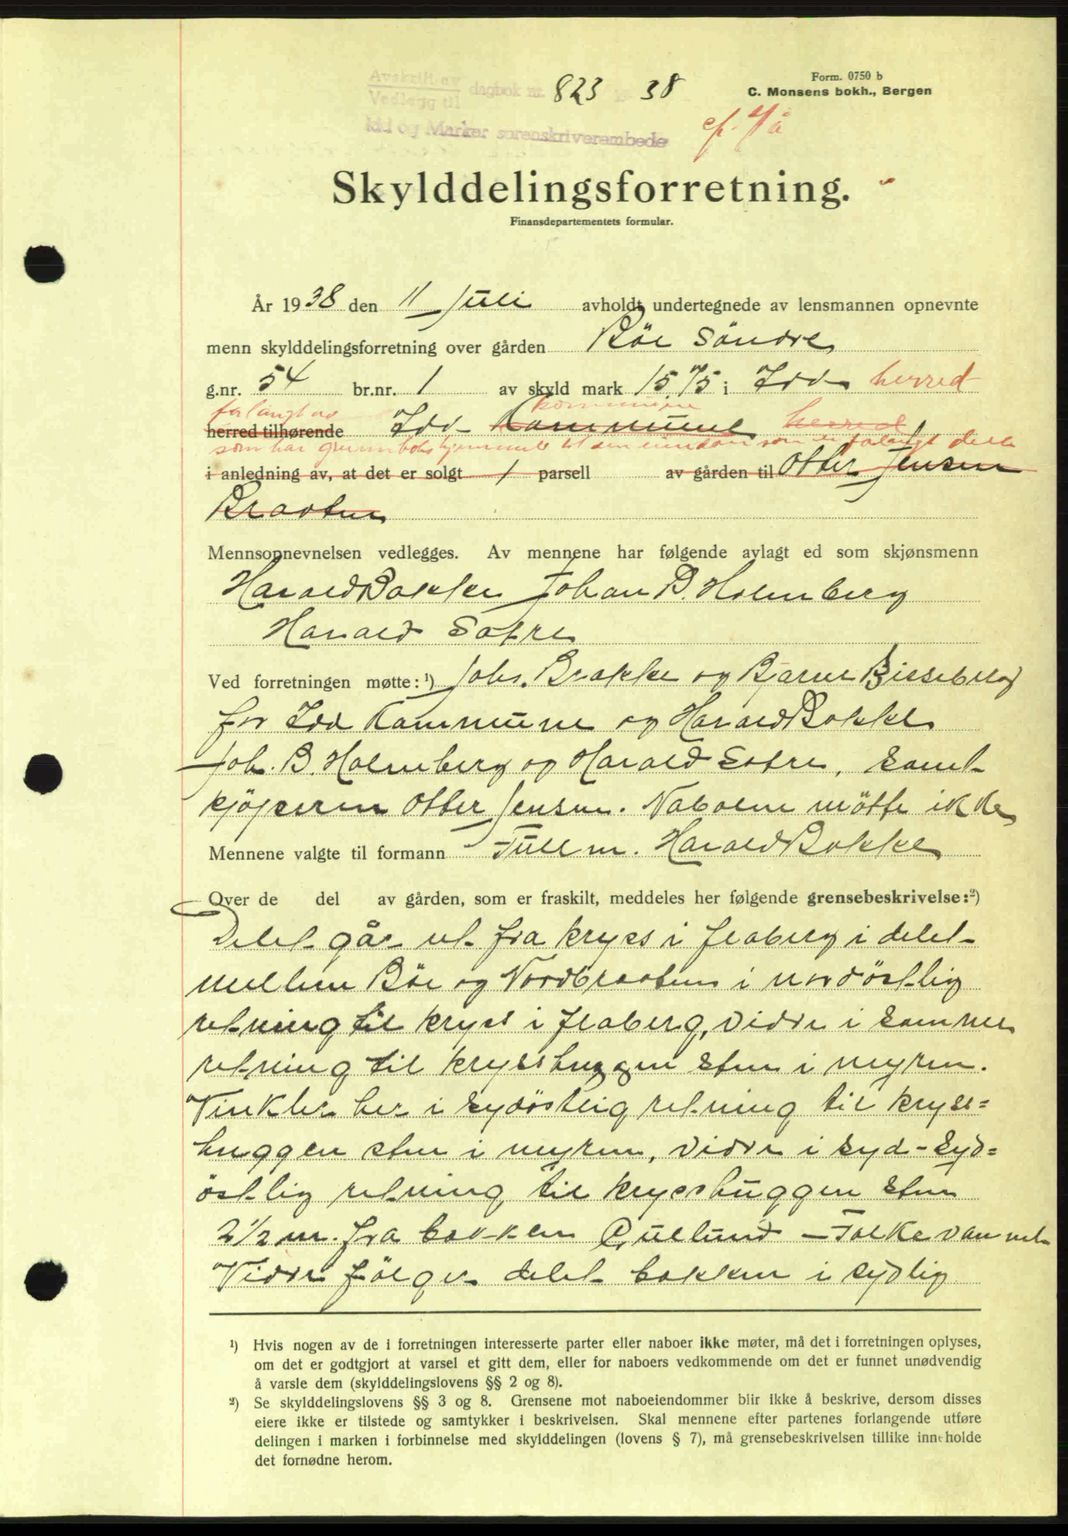 Form. 0750 b
C. Monsens bokh., Bergen
Avskrift av
Vedlegg til dagbok nr. 823 19 38
Idd og Marker sorenskriverembede
Skylddelingsforretning.
Finansdepartementets formular.
År 1938 den 11 Juli avholdt undertegnede av lensmannen opnevnte
menn skylddelingsforretning over gården Böe Söndre
g.nr. 54 br.nr. 1 av skyld mark 15,75 i Idd herred
forlangt av kommune
herred tilhørende Idd Kommune herred
som har grunnbokshjemmel til den eiendom som er forlangt delt
i anledning av, at det er solgt 1 parsell av gården til Otter Jensen
Braaten
Mennsopnevnelsen vedlegges. Av mennene har følgende avlagt ed som skjønsmenn
Harald Bakke Johan B. Holmberg
Harald Sætre
Ved forretningen møtte: ¹) Johs. Brække og Bjarne Bisseberg
for Idd Kommune og Harald Bakke
Joh. B. Holmberg og Harald Sætre, samt
kjöperen Otter Jensen. Naboene mötte ikke
Mennene valgte til formann Fullm. Harald Bakke
Over de del av gården, som er fraskilt, meddeles her følgende grensebeskrivelse: ²)
Delet går ut fra kryss i fjaberg i delet
mellem Böe og Nordbraaten i nordöstlig
retning til kryss i fjaberg, vidre i samme
retning til krysshuggen sten i myren.
Vinkler her i sydöstlig retning til kryss=
huggen sten i myren, vidre i syd-syd=
östlig retning til krysshuggen sten
2 1/2 m. fra bækken Gullund - Folkevannet
Vidre fölger delet bækken i sydlig
¹) Hvis nogen av de i forretningen interesserte parter eller naboer ikke møter, må det i forretningen oplyses,
om det er godtgjort at varsel et gitt dem, eller for naboers vedkommende om det er funnet unødvendig
å varsle dem (skylddelingslovens §§ 2 og 8).
²) Se skylddelingslovens §§ 3 og 8. Grensene mot naboeiendommer blir ikke å beskrive, dersom disses
eiere ikke er tilstede og samtykker i beskrivelsen. Skal mennene efter partenes forlangende utføre
delingen i marken i forbinnelse med skylddelingen (lovens § 7), må grensebeskrivelsen tillike inneholde
det fornødne herom.